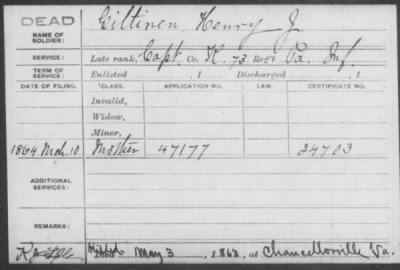 DEAD
NAME OF SOLDIER: Giltinen, Henry J.
SERVICE: Late rank, Capt. Co. K. 73 Reg't Pa. Inf.
TERM OF SERVICE: Enlisted , 1 Discharged , 1
DATE OF FILING. CLASS. APPLICATION NO. LAW. CERTIFICATE NO.
Invalid,
Widow,
Minor,
1864 Mch. 10 Mother 47177 24703
ADDITIONAL SERVICES:
REMARKS:
May 3 , 1863, at Chancellorville Va.